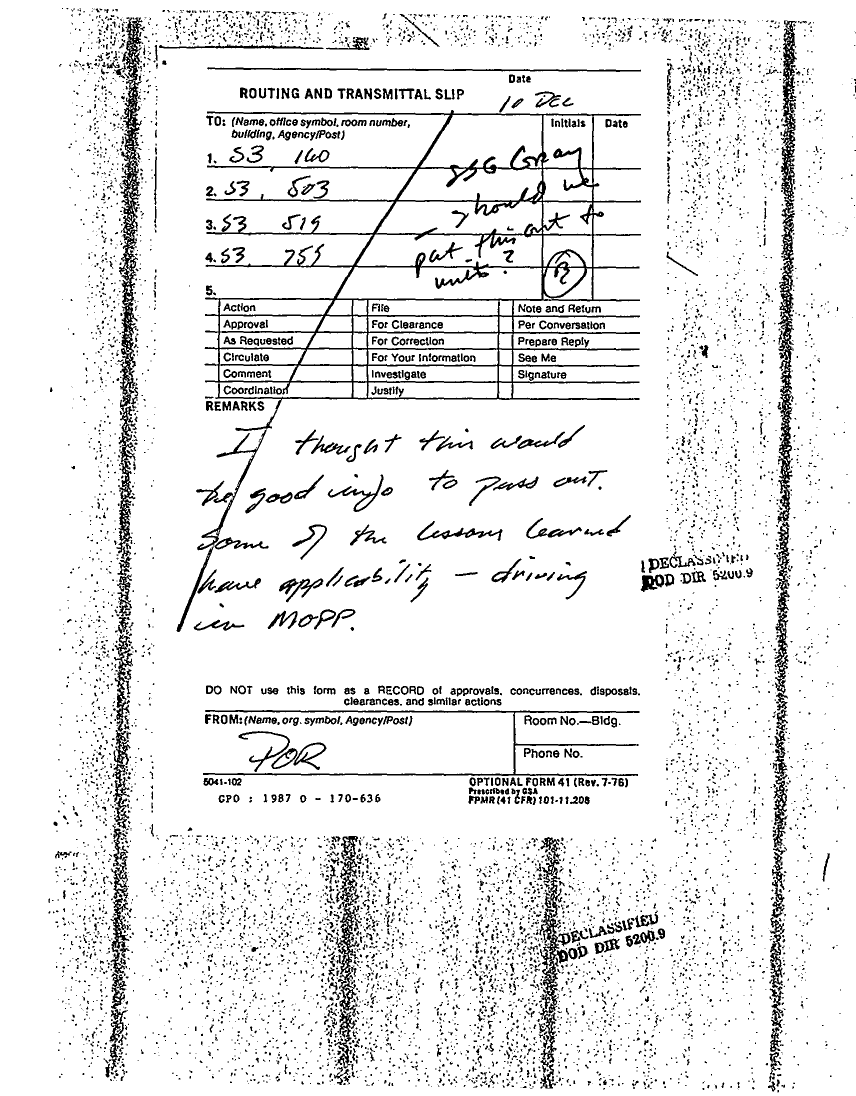 Date
ROUTING AND TRANSMITTAL SLIP
10 DEC
TO: (Name, office symbol, room number,
building, Agency/Post)
Initials
Date
1. S3, 160
2. S3, 503
3. S3 519
4. S3. 755
5.
SSG
should we
put this out to
units?
Action
File
Note and Return
Approval
For Clearance
Per Conversation
As Requested
For Correction
Prepare Reply
Circulate
For Your Information
See Me
Comment
Investigate
Signature
Coordination
Justify
REMARKS
I thought this would
be good info to pass out.
Some of the lessons learned
have applicability — driving
in MOPP.
DECLASSIFIED
DOD DIR 5200.9
DO NOT use this form as a RECORD of approvals, concurrences, disposals,
clearances, and similar actions
FROM: (Name, org. symbol, Agency/Post)
Room No.—Bldg.
Phone No.
POR
5041-102
OPTIONAL FORM 41 (Rev. 7-76)
Prescribed by GSA
FPMR (41 CFR) 101-11.206
GPO : 1987 O - 170-636
DECLASSIFIED
DOD DIR 5200.9